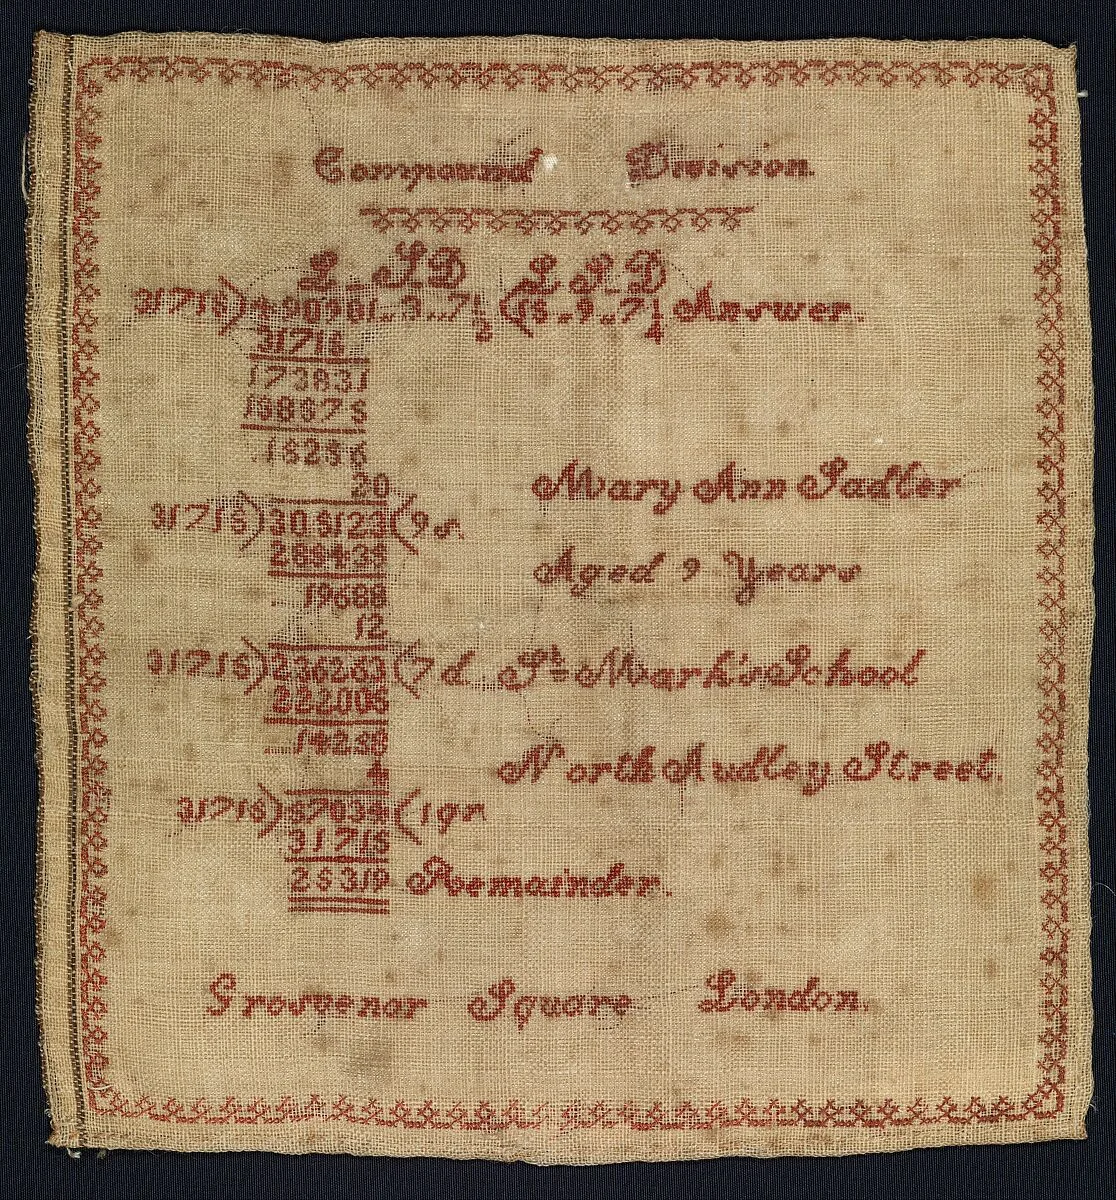 Compound Division.
L S D L S D
31715)490981..3..7½(15..9..7¼ Answer.
31715
173831
158575
15256
20
Mary Ann Sadler
31715)305123(9s.
285435
Aged 9 Years
19688
12
31715)236263(7d
St Mark's School
222005
14258
4
North Audley Street.
31715)57034(1qr
31715
25319 Remainder.
Grosvenor Square London.